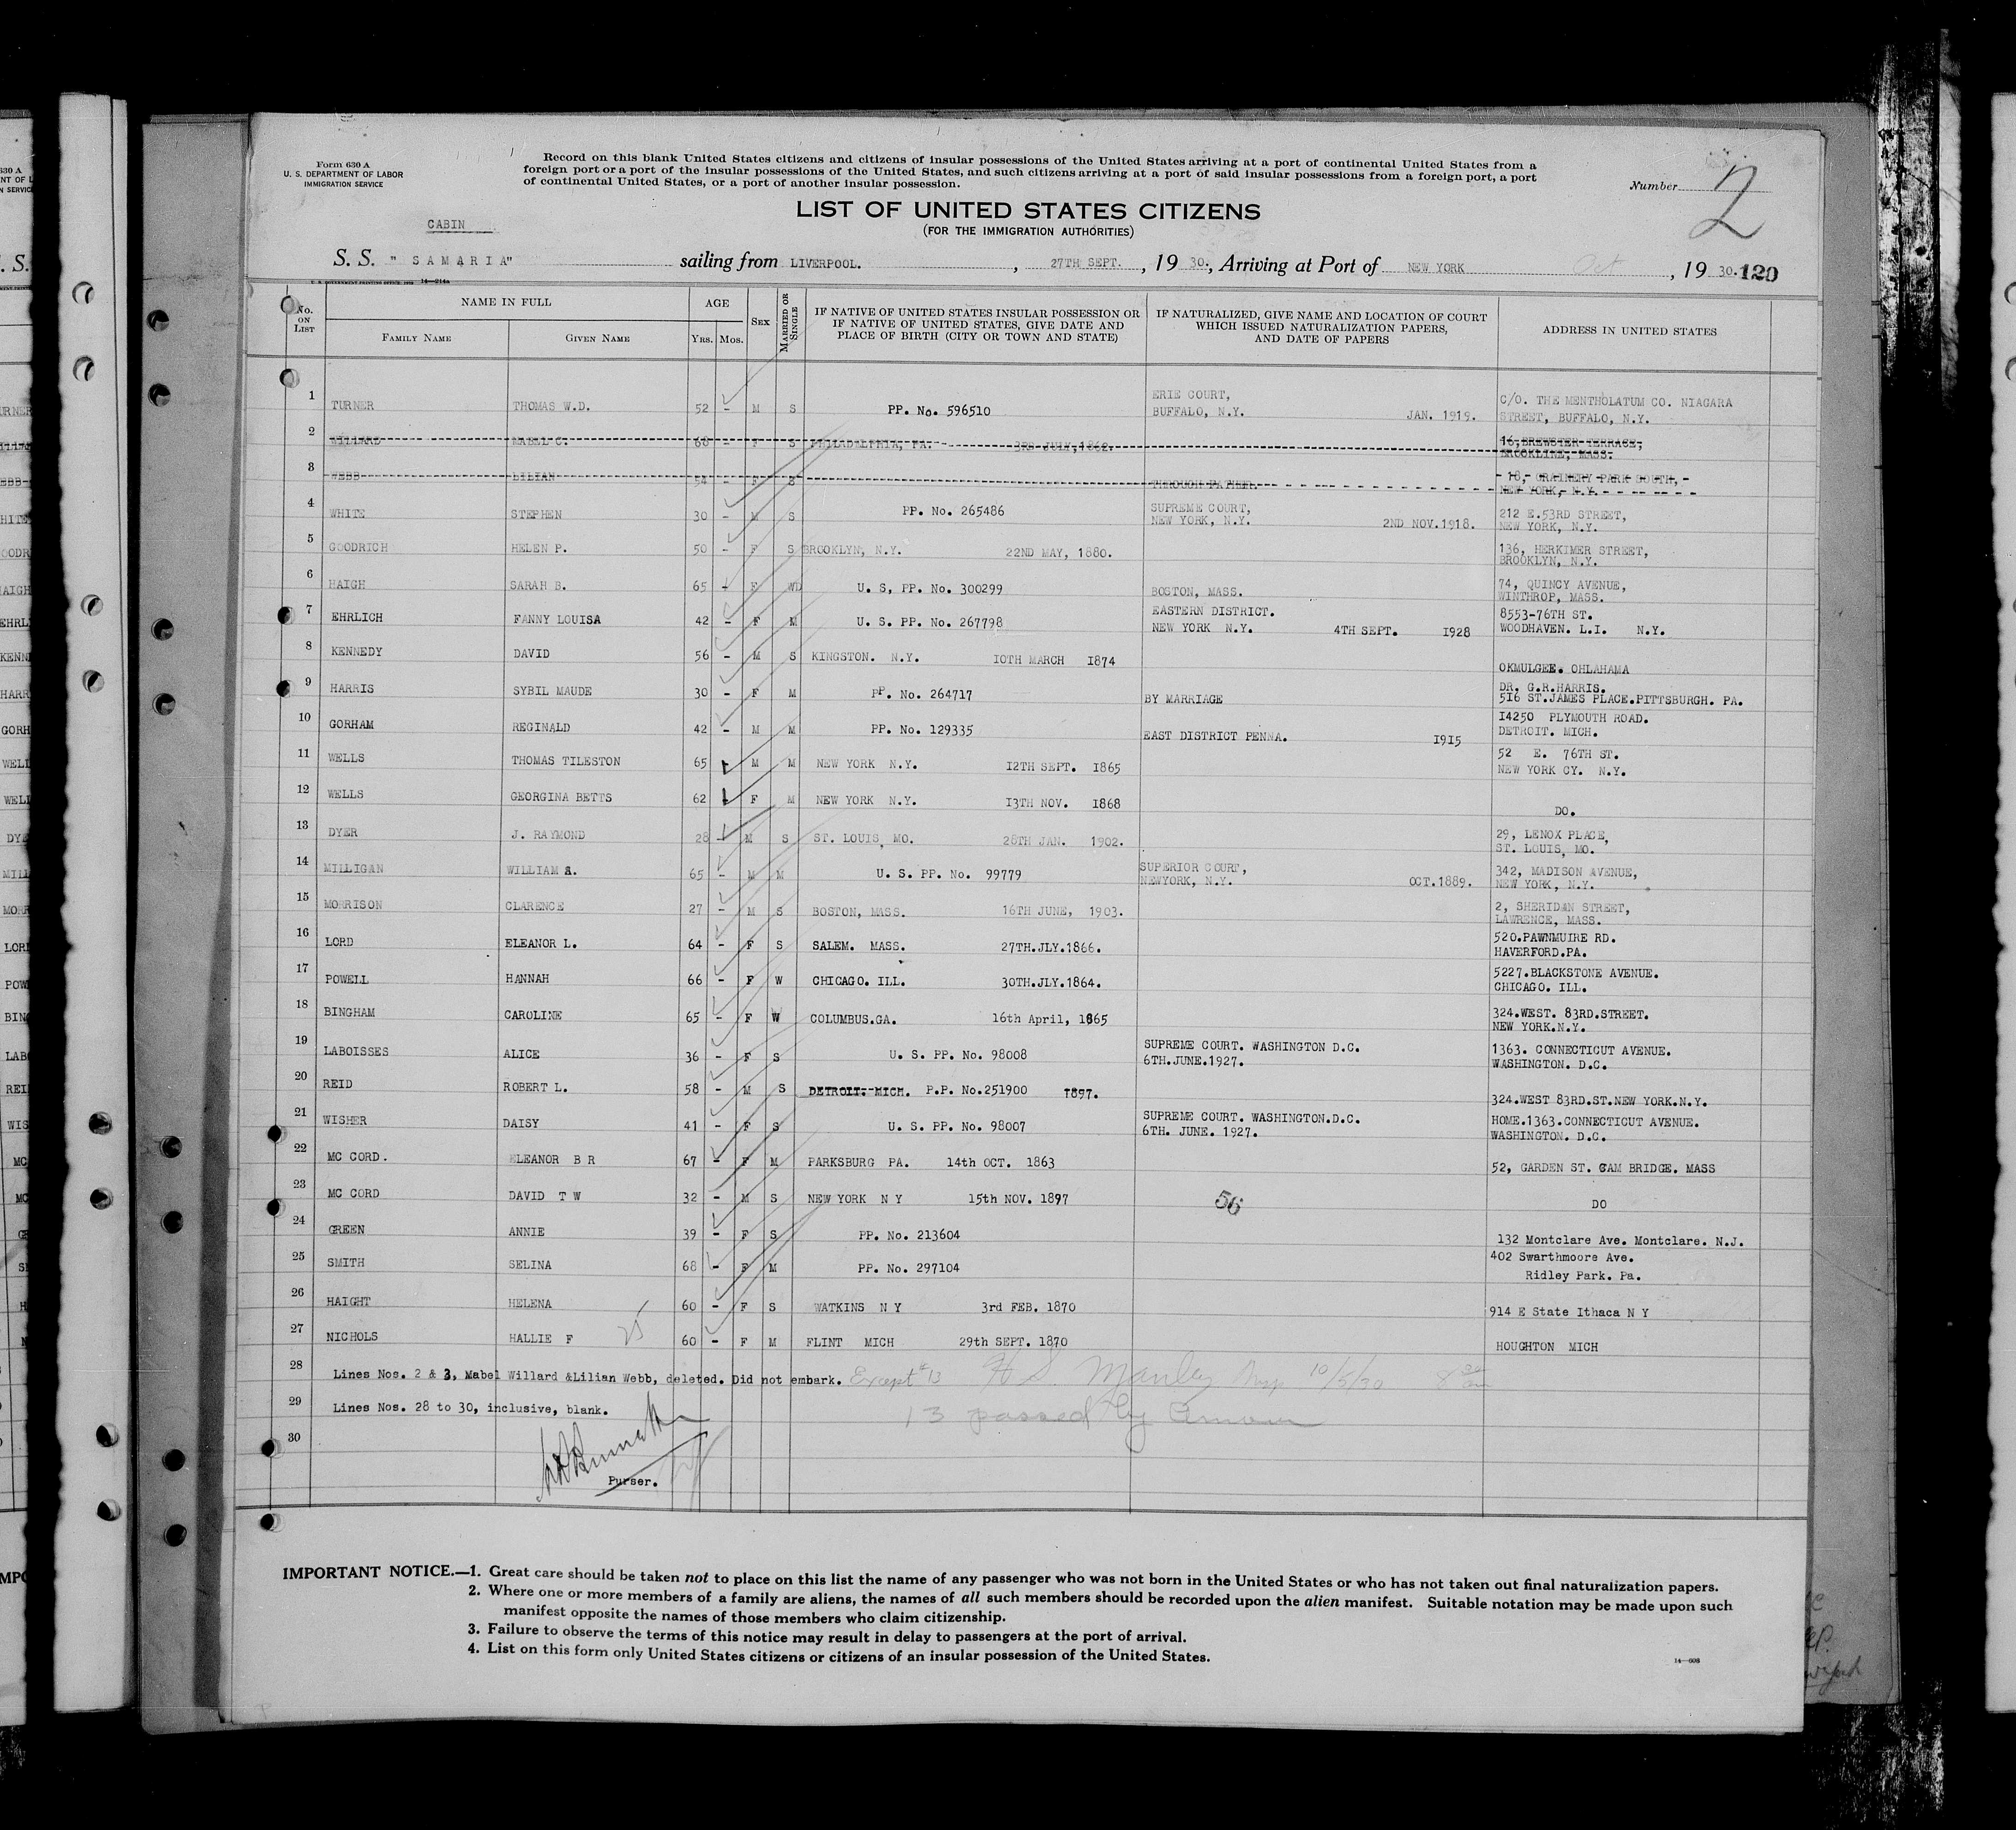 Form 630 A
U. S. DEPARTMENT OF LABOR
IMMIGRATION SERVICE
Record on this blank United States citizens and citizens of insular possessions of the United States arriving at a port of continental United States from a
foreign port or a port of the insular possessions of the United States, and such citizens arriving at a port of said insular possessions from a foreign port, a port
of continental United States, or a port of another insular possession.
Number 2
LIST OF UNITED STATES CITIZENS
(FOR THE IMMIGRATION AUTHORITIES)
CABIN
S. S. "SAMARIA" sailing from LIVERPOOL. , 27TH SEPT. , 19 30., Arriving at Port of NEW YORK Oct , 19 30. 120
No. ON LIST
NAME IN FULL
FAMILY NAME
GIVEN NAME
AGE
YRS. MOS.
SEX
MARRIED OR SINGLE
IF NATIVE OF UNITED STATES INSULAR POSSESSION OR
IF NATIVE OF UNITED STATES, GIVE DATE AND
PLACE OF BIRTH (CITY OR TOWN AND STATE)
IF NATURALIZED, GIVE NAME AND LOCATION OF COURT
WHICH ISSUED NATURALIZATION PAPERS,
AND DATE OF PAPERS
ADDRESS IN UNITED STATES
1 TURNER THOMAS W.D. 52 - M S PP. No. 596510 ERIE COURT,
BUFFALO, N.Y. JAN. 1919. C/O. THE MENTHOLATUM CO. NIAGARA
STREET, BUFFALO, N.Y.
2 WILLARD MABEL C. 68 - F S PHILADELPHIA, PA. 3RD JULY, 1862. 16, BREWSTER TERRACE,
BROOKLINE, MASS.
3 WEBB LILIAN 54 - F S THROUGH FATHER. 18, GRAINERY PARK SOUTH,
NEW YORK, N.Y.
4 WHITE STEPHEN 30 - M S PP. No. 265486 SUPREME COURT,
NEW YORK, N.Y. 2ND NOV.1918. 212 E.53RD STREET,
NEW YORK, N.Y.
5 GOODRICH HELEN P. 50 - F S BROOKLYN, N.Y. 22ND MAY, 1880. 136, HERKIMER STREET,
BROOKLYN, N.Y.
6 HAIGH SARAH B. 65 - F WD U. S, PP. No. 300299 BOSTON, MASS. 74, QUINCY AVENUE,
WINTHROP, MASS.
7 EHRLICH FANNY LOUISA 42 - F M U. S. PP. No. 267798 EASTERN DISTRICT.
NEW YORK N.Y. 4TH SEPT. 1928 8553-76TH ST.
WOODHAVEN. L.I. N.Y.
8 KENNEDY DAVID 56 - M S KINGSTON. N.Y. 10TH MARCH 1874 OKMULGEE. OHLAHAMA
9 HARRIS SYBIL MAUDE 30 - F M PP. No. 264717 BY MARRIAGE DR. G.R.HARRIS.
516 ST.JAMES PLACE.PITTSBURGH. PA.
10 GORHAM REGINALD 42 - M M PP. No. 129335 EAST DISTRICT PENNA. 1915 14250 PLYMOUTH ROAD.
DETROIT. MICH.
11 WELLS THOMAS TILESTON 65 - M M NEW YORK N.Y. 12TH SEPT. 1865 52 E. 76TH ST.
NEW YORK CY. N.Y.
12 WELLS GEORGINA BETTS 62 - F M NEW YORK N.Y. 13TH NOV. 1868 DO.
13 DYER J. RAYMOND 28 - M S ST. LOUIS, MO. 28TH JAN. 1902. 29, LENOX PLACE,
ST. LOUIS, MO.
14 MILLIGAN WILLIAM A. 65 - M M U. S. PP. No. 99779 SUPERIOR COURT,
NEWYORK, N.Y. OCT.1889. 342, MADISON AVENUE,
NEW YORK, N.Y.
15 MORRISON CLARENCE 27 - M S BOSTON, MASS. 16TH JUNE, 1903. 2, SHERIDAN STREET,
LAWRENCE, MASS.
16 LORD ELEANOR L. 64 - F S SALEM. MASS. 27TH.JLY.1866. 520.PAWNMUIRE RD.
HAVERFORD.PA.
17 POWELL HANNAH 66 - F W CHICAGO. ILL. 30TH.JLY.1864. 5227.BLACKSTONE AVENUE.
CHICAGO. ILL.
18 BINGHAM CAROLINE 65 - F W COLUMBUS.GA. 16th April, 1865 324.WEST. 83RD.STREET.
NEW YORK.N.Y.
19 LABOISSES ALICE 36 - F S U. S. PP. No. 98008 SUPREME COURT. WASHINGTON D.C.
6TH.JUNE.1927. 1363. CONNECTICUT AVENUE.
WASHINGTON. D.C.
20 REID ROBERT L. 58 - M S DETROIT. MICH. P.P. No.251900 1897. 324.WEST 83RD.ST.NEW YORK.N.Y.
21 WISHER DAISY 41 - F S U. S. PP. No. 98007 SUPREME COURT. WASHINGTON.D.C.
6TH. JUNE. 1927. HOME.1363.CONNECTICUT AVENUE.
WASHINGTON. D.C.
22 MC CORD. ELEANOR B R 67 - F M PARKSBURG PA. 14th OCT. 1863 52, GARDEN ST. CAM BRIDGE. MASS
23 MC CORD DAVID T W 32 - M S NEW YORK N Y 15th NOV. 1897 56 DO
24 GREEN ANNIE 39 - F S PP. No. 213604 132 Montclare Ave. Montclare. N.J.
25 SMITH SELINA 68 - F M PP. No. 297104 402 Swarthmoore Ave.
Ridley Park. Pa.
26 HAIGHT HELENA 60 - F S WATKINS N Y 3rd FEB. 1870 914 E State Ithaca N Y
27 NICHOLS HALLIE F 25 60 - F M FLINT MICH 29th SEPT. 1870 HOUGHTON MICH
28 Lines Nos. 2 & 3, Mabel Willard &Lilian Webb, deleted. Did not embark. Except #13 H S Manley Insp 10/5/30 8 30 am
29 Lines Nos. 28 to 30, inclusive, blank. 13 passed by
30
Purser.
IMPORTANT NOTICE.—1. Great care should be taken not to place on this list the name of any passenger who was not born in the United States or who has not taken out final naturalization papers.
2. Where one or more members of a family are aliens, the names of all such members should be recorded upon the alien manifest. Suitable notation may be made upon such
manifest opposite the names of those members who claim citizenship.
3. Failure to observe the terms of this notice may result in delay to passengers at the port of arrival.
4. List on this form only United States citizens or citizens of an insular possession of the United States.
14—698